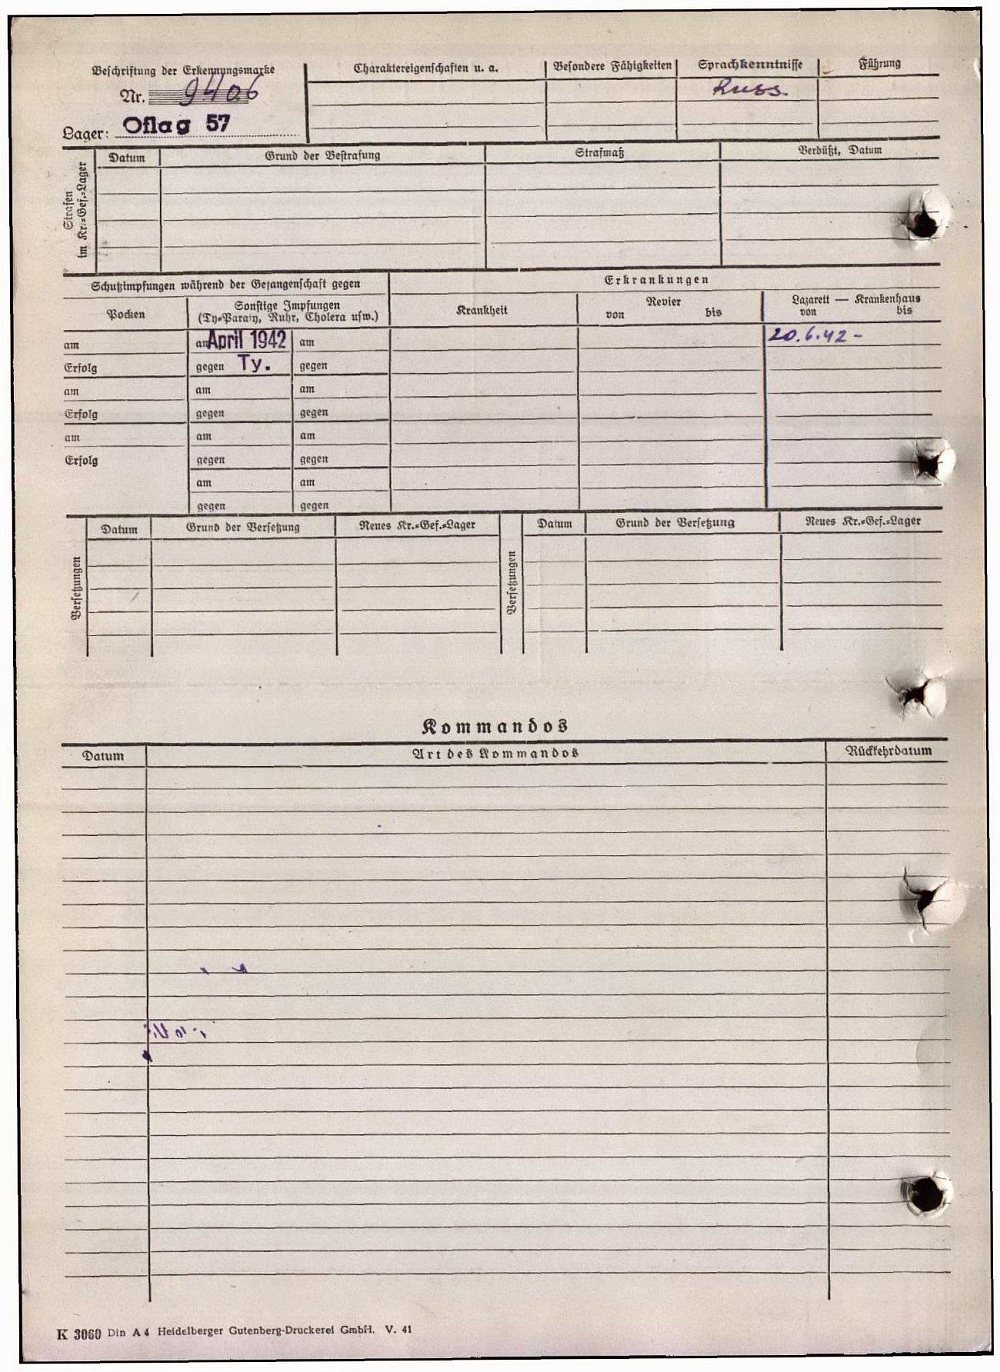 Beschriftung der Erkennungsmarke
Nr. 9406
Lager: Oflag 57
Charaktereigenschaften u. a.
Besondere Fähigkeiten
Sprachkenntnisse
Russ.
Führung
Strafen im Kr.=Gef.=Lager
Datum Grund der Bestrafung Strafmaß Verbüßt, Datum
Schutzimpfungen während der Gefangenschaft gegen
Erkrankungen
Pocken
Sonstige Impfungen
(Ty=Paraty, Ruhr, Cholera usw.)
Krankheit
Revier
von bis
Lazarett — Krankenhaus
von bis
am am April 1942 am 20.6.42 -
Erfolg gegen Ty. gegen
am am am
Erfolg gegen gegen
am am am
Erfolg gegen gegen
am am
gegen gegen
Versetzungen
Datum Grund der Versetzung Neues Kr.=Gef.=Lager
Versetzungen
Datum Grund der Versetzung Neues Kr.=Gef.=Lager
Kommandos
Datum Art des Kommandos Rückkehrdatum
K 3060 Din A 4 Heidelberger Gutenberg-Druckerei GmbH. V. 41